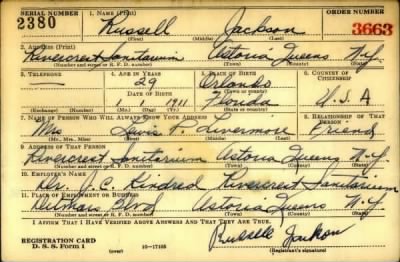 SERIAL NUMBER 1. NAME (Print) ORDER NUMBER
2380 Russell Jackson 3663
(First) (Middle) (Last)
2. ADDRESS (Print)
Rivercrest Sanitarium Astoria Queens N.Y.
(Number and street or R. F. D. number) (Town) (County) (State)
3. TELEPHONE 4. AGE IN YEARS 5. PLACE OF BIRTH 6. COUNTRY OF CITIZENSHIP
29 Orlando
DATE OF BIRTH (Town or county)
1 1911 Florida U.S.A
(Exchange) (Number) (Mo.) (Day) (Yr.) (State or country)
7. NAME OF PERSON WHO WILL ALWAYS KNOW YOUR ADDRESS 8. RELATIONSHIP OF THAT PERSON
Mrs Lewis F. Livermore Friend
(Mr., Mrs., Miss) (First) (Middle) (Last)
9. ADDRESS OF THAT PERSON
Rivercrest Sanitarium Astoria Queens N.Y.
(Number and street or R. F. D. number) (Town) (County) (State)
10. EMPLOYER'S NAME
Dr. J. C. Kindred Rivercrest Sanitarium
11. PLACE OF EMPLOYMENT OR BUSINESS
Ditmars Blvd Astoria Queens N.Y.
(Number and street or R. F. D. number) (Town) (County) (State)
I AFFIRM THAT I HAVE VERIFIED ABOVE ANSWERS AND THAT THEY ARE TRUE.
Russell Jackson
REGISTRATION CARD
D. S. S. Form 1 (over) 16—17105 (Registrant's signature)